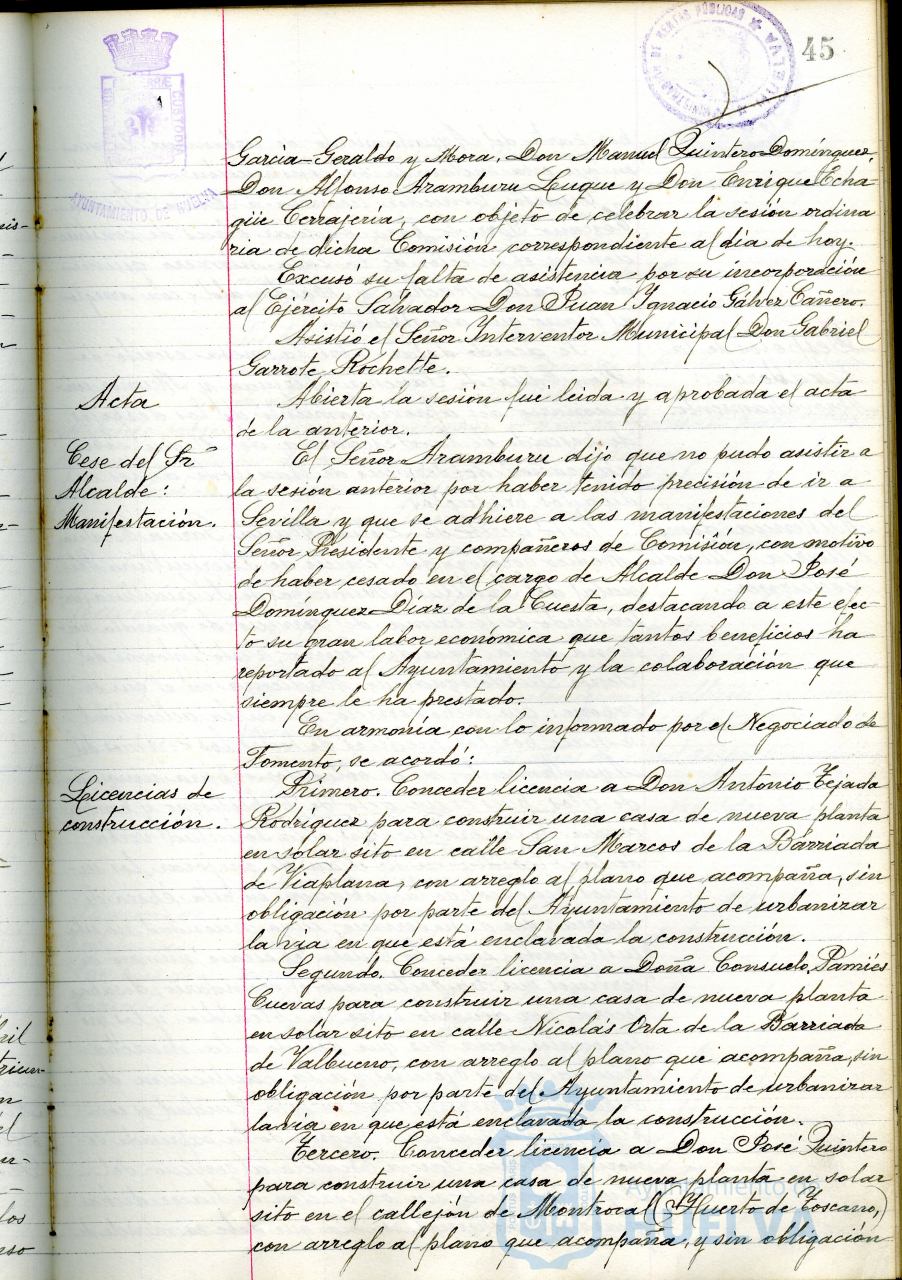 45
AYUNTAMIENTO DE HUELVA
García-Geraldo y Mora, Don Manuel Quintero Domínguez,
Don Alfonso Aramburu Luque y Don Enrique Echa-
güe Cerrajería, con objeto de celebrar la sesión ordina
ria de dicha Comisión correspondiente al día de hoy.
Excusó su falta de asistencia por su incorporación
al Ejército Salvador Don Juan Ygnacio Gálvez Cañero.
Asistió el Señor Interventor Municipal Don Gabriel
Garrote Rochette.
Acta
Abierta la sesión fué leida y aprobada el acta
de la anterior.
Cese del Sr
Alcalde:
Manifestación.
El Señor Aramburu dijo que no pudo asistir a
la sesión anterior por haber tenido precisión de ir a
Sevilla y que se adhiere a las manifestaciones del
Señor Presidente y compañeros de Comisión, con motivo
de haber cesado en el cargo de Alcalde Don José
Domínguez Díaz de la Cuesta, destacando a este efec-
to su gran labor económica que tantos beneficios ha
reportado al Ayuntamiento y la colaboración que
siempre le ha prestado.
En armonía con lo informado por el Negociado de
Fomento, se acordó:
Licencias de
construcción.
Primero. Conceder licencia a Don Antonio Tejada
Rodríguez para construir una casa de nueva planta
en solar sito en calle San Marcos de la Barriada
de Viaplana, con arreglo al plano que acompaña, sin
obligación por parte del Ayuntamiento de urbanizar
la via en que está enclavada la construcción.
Segundo. Conceder licencia a Doña Consuelo Pamies
Cuevas para construir una casa de nueva planta
en solar sito en calle Nicolás Orta de la Barriada
de Valbueno, con arreglo al plano que acompaña, sin
obligación por parte del Ayuntamiento de urbanizar
la via en que está enclavada la construcción.
Tercero. Conceder licencia a Don José Quintero
para construir una casa de nueva planta en solar
sito en el callejón de Montrocal (Huerto de Toscano,)
con arreglo al plano que acompaña, y sin obligación
Ayuntamiento de
HUELVA